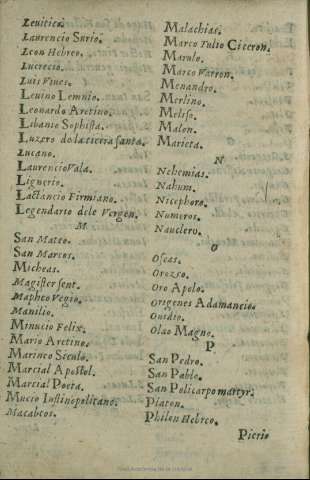 Leuitico.
Laurencio Surio.
Leon Hebreo.
Lucrecio.
Luis Viues.
Leuino Lemnio.
Leonardo Aretino.
Libanio Sophista.
Luzero de la tierra santa.
Lucano.
Laurencio Vala.
Liguerio.
Lactancio Firmiano.
Legendario dele Vergen.
M
San Mateo.
San Marcos.
Micheas.
Magister sent.
Mapheo Vegio.
Manilio.
Minucio Felix.
Mario Aretino.
Marineo Siculo.
Marcial Apostol.
Marcial Poeta.
Mucio Iustinopolitano.
Macabeos.
Malachias.
Marco Tulio Ciceron.
Marulo.
Marco Varron.
Menandro.
Merlino.
Meliso.
Malon.
Marieta.
N
Nehemias.
Nahum.
Nicephoro.
Numeros.
Nauclero.
O
Oseas.
Orozco.
Oro Apolo.
Origenes Adamancio.
Ouidio.
Olao Magno.
P
San Pedro.
San Pablo.
San Policarpo martyr.
Platon.
Philon Hebreo.
Pierio